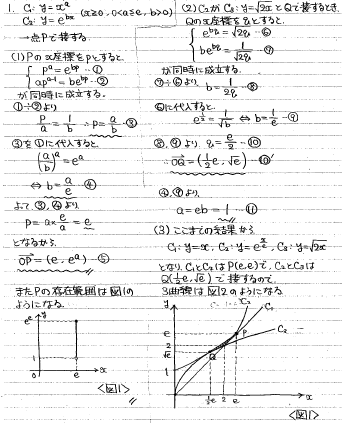 1. C₁: y=xᵃ
C₂: y=eᵇˣ (x≧0, 0<a≦e, b>0)
→点Pで接する。
(1) Pのx座標をpとすると
{ pᵃ=eᵇᵖ …①
apᵃ⁻¹=beᵇᵖ …②
が同時に成立する。
①÷②より
p/a = 1/b ∴ p=a/b …③
③を①に代入すると
(a/b)ᵃ=eᵃ
⇔ b=a/e ④
よって③,④より
p=a×e/a=e
となるから
OP=(e, eᵃ) …⑤
またPの存在範囲は図1の
ようになる。
y
eᵉ
1
0
e
x
<図1>
(2) C₂がC₃: y=√2xとQで接するとき、
Qのx座標をqとすると
{ eᵇᑫ=√2q …⑥
beᵇᑫ=1/√2q …⑦
が同時に成立する。
⑦÷⑥より b=1/2q …⑧
⑥に代入すると
e^½=1/√b ⇔ b=1/e …⑨
⑧,⑨より、q=e/2 …⑩
∴ OQ=(½e, √e) …⑩'
④,⑨より
a=eb=1 …⑪
(3) ここまでの結果から
C₁: y=x, C₂: y=e^(x/e), C₃: y=√2x
となり、C₁とC₂はP(e,e)で、C₂とC₃は
Q(½e,√e)で接するので、
3曲線は図2のようになる。
y
C₂
C₁
C₃
e
2
√e
1
P
Q
½e
2
e
x
<図2>